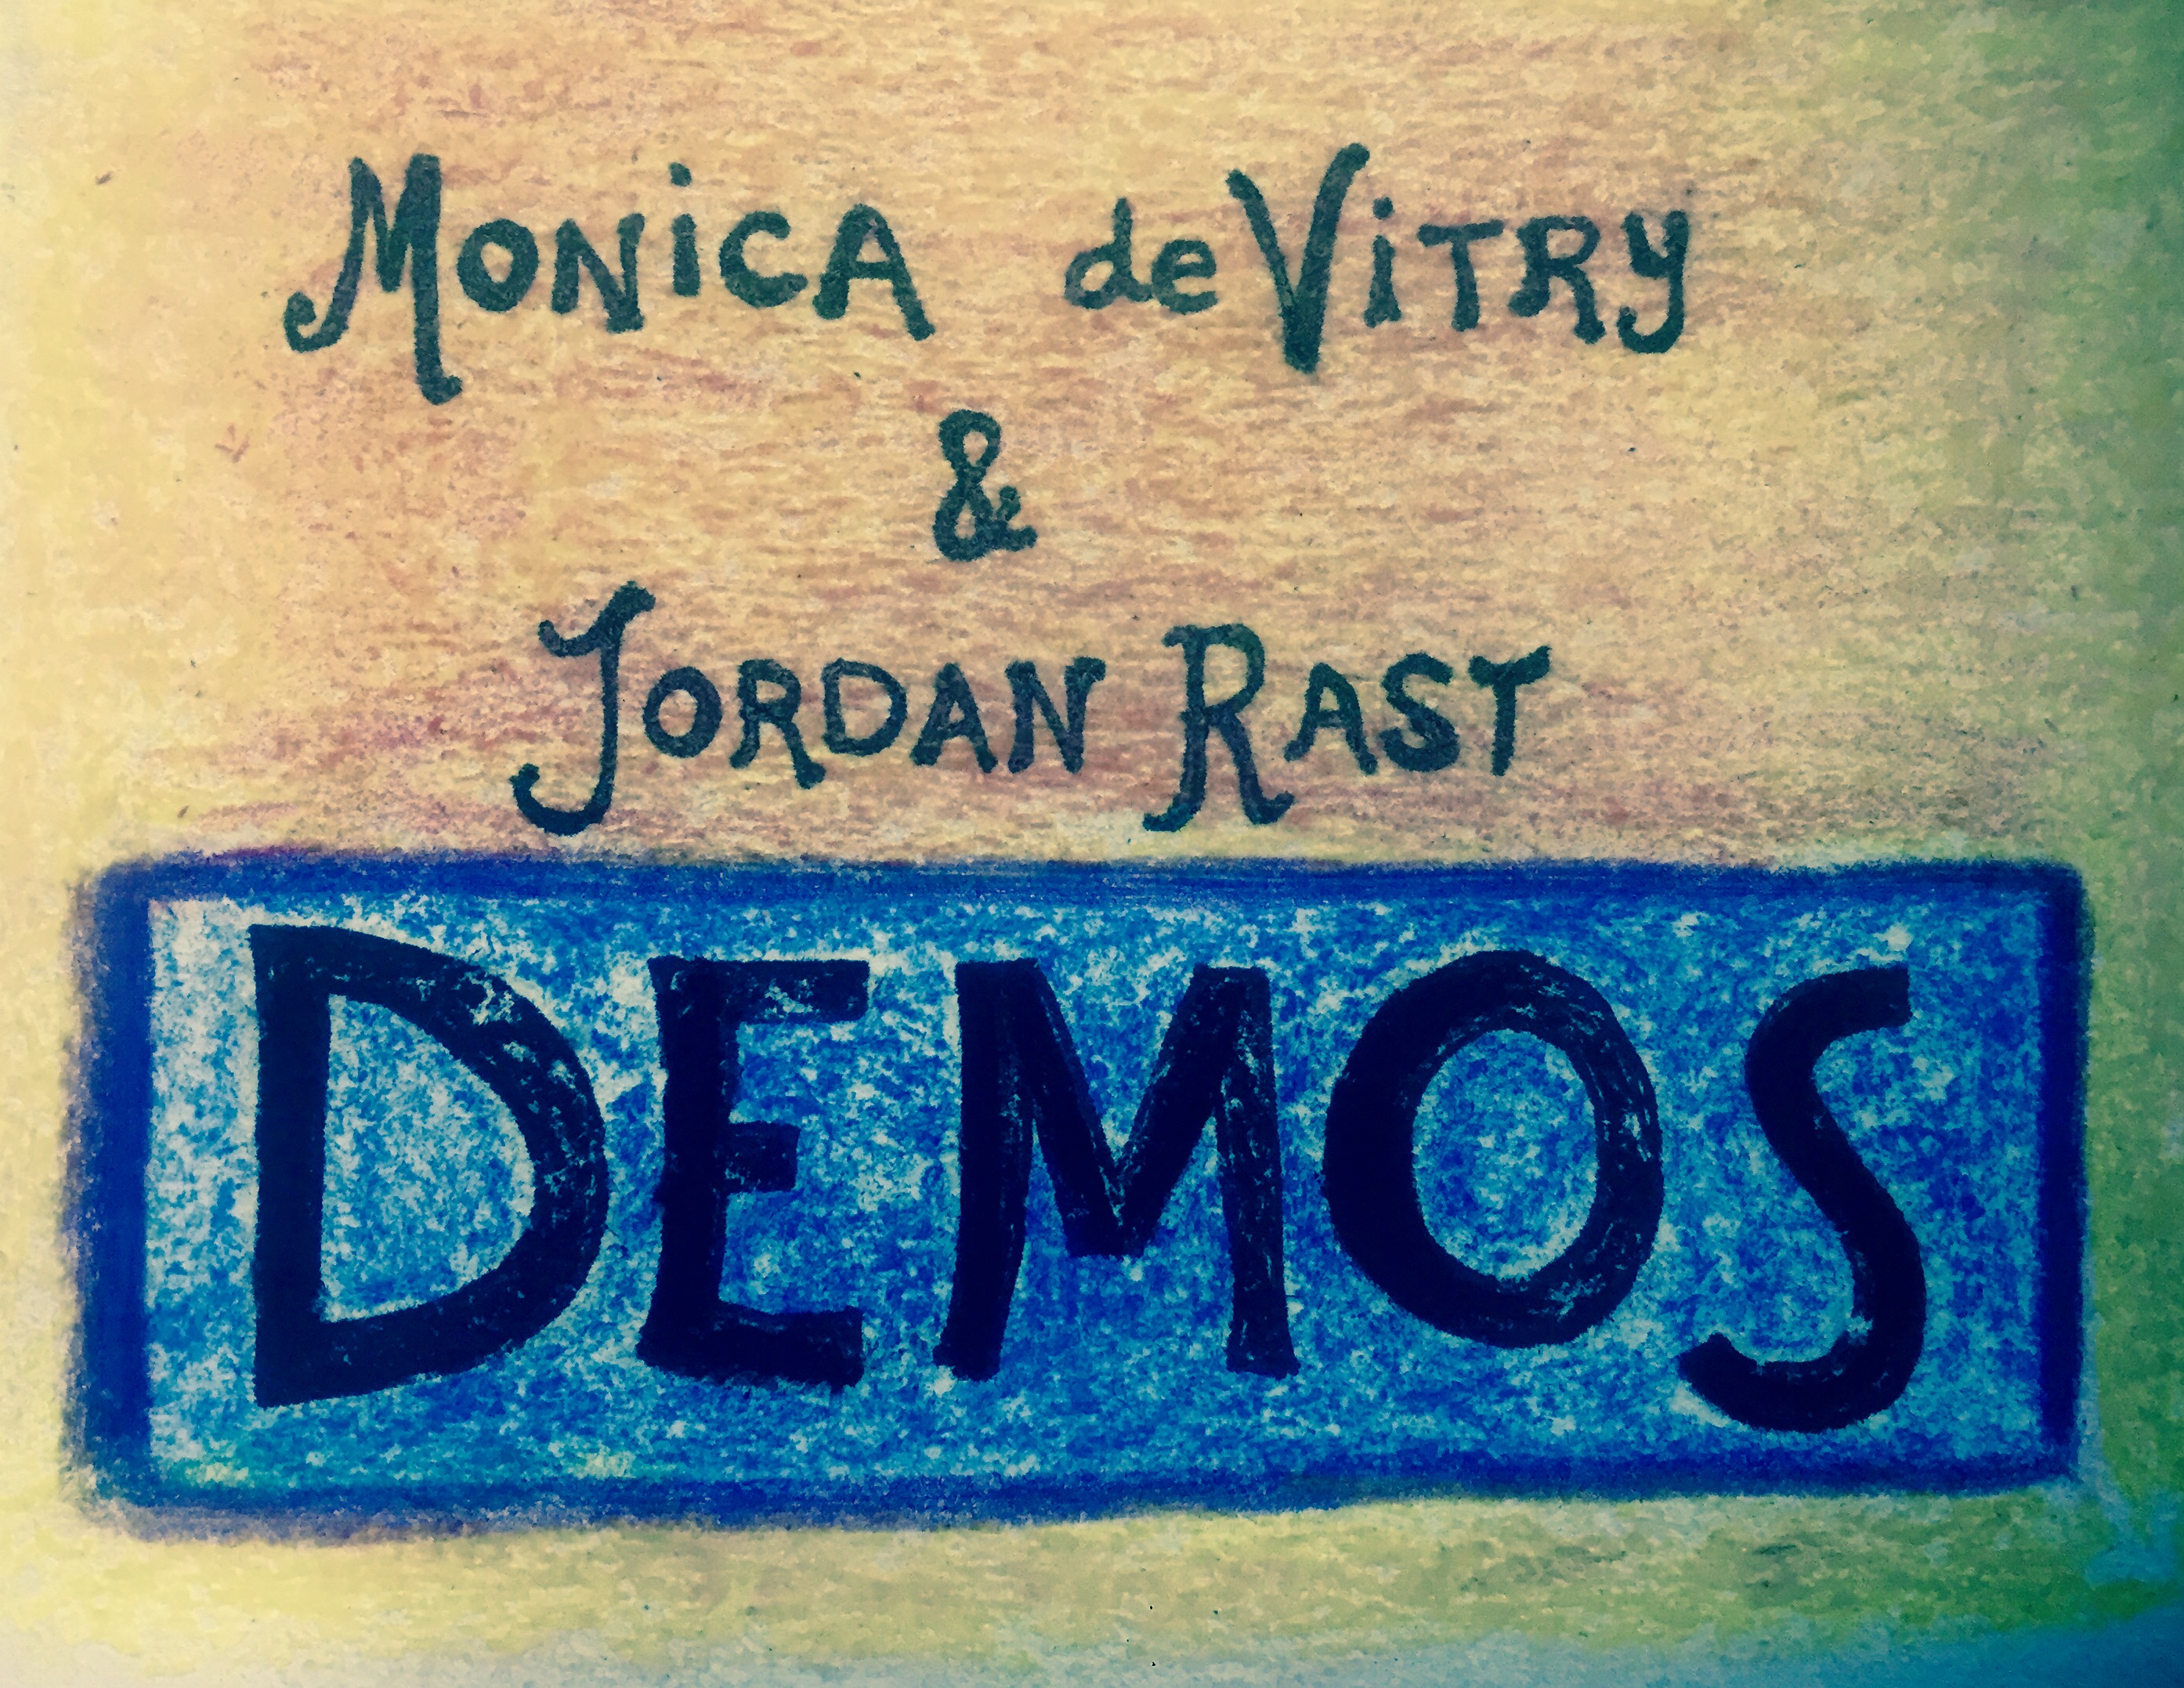 Monica deVitry
&
Jordan Rast
DEMOS